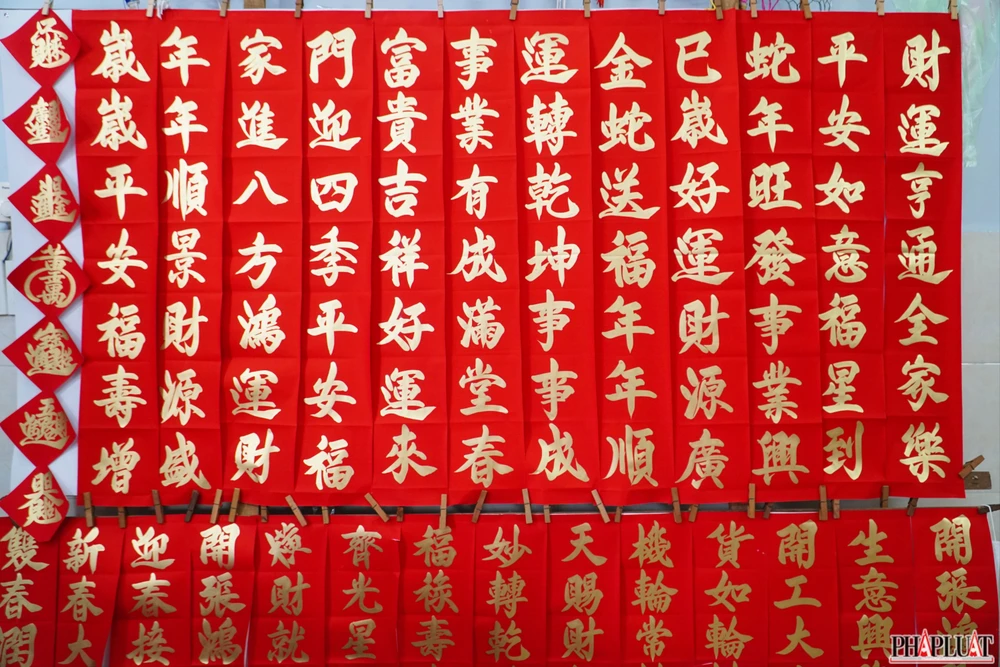 財運亨通全家樂
平安如意福星到
蛇年旺發事業興
巳歲好運財源廣
金蛇送福年年順
運轉乾坤事事成
事業有成滿堂春
富貴吉祥好運來
門迎四季平安福
家進八方鴻運財
年年順景財源盛
歲歲平安福壽增
開張鴻
生意興
開工大
貨如輪
機輪常
天賜財
妙轉乾
福祿壽
齊光星
財就
開張鴻
迎春接
新春大
春
PHAPLUAT